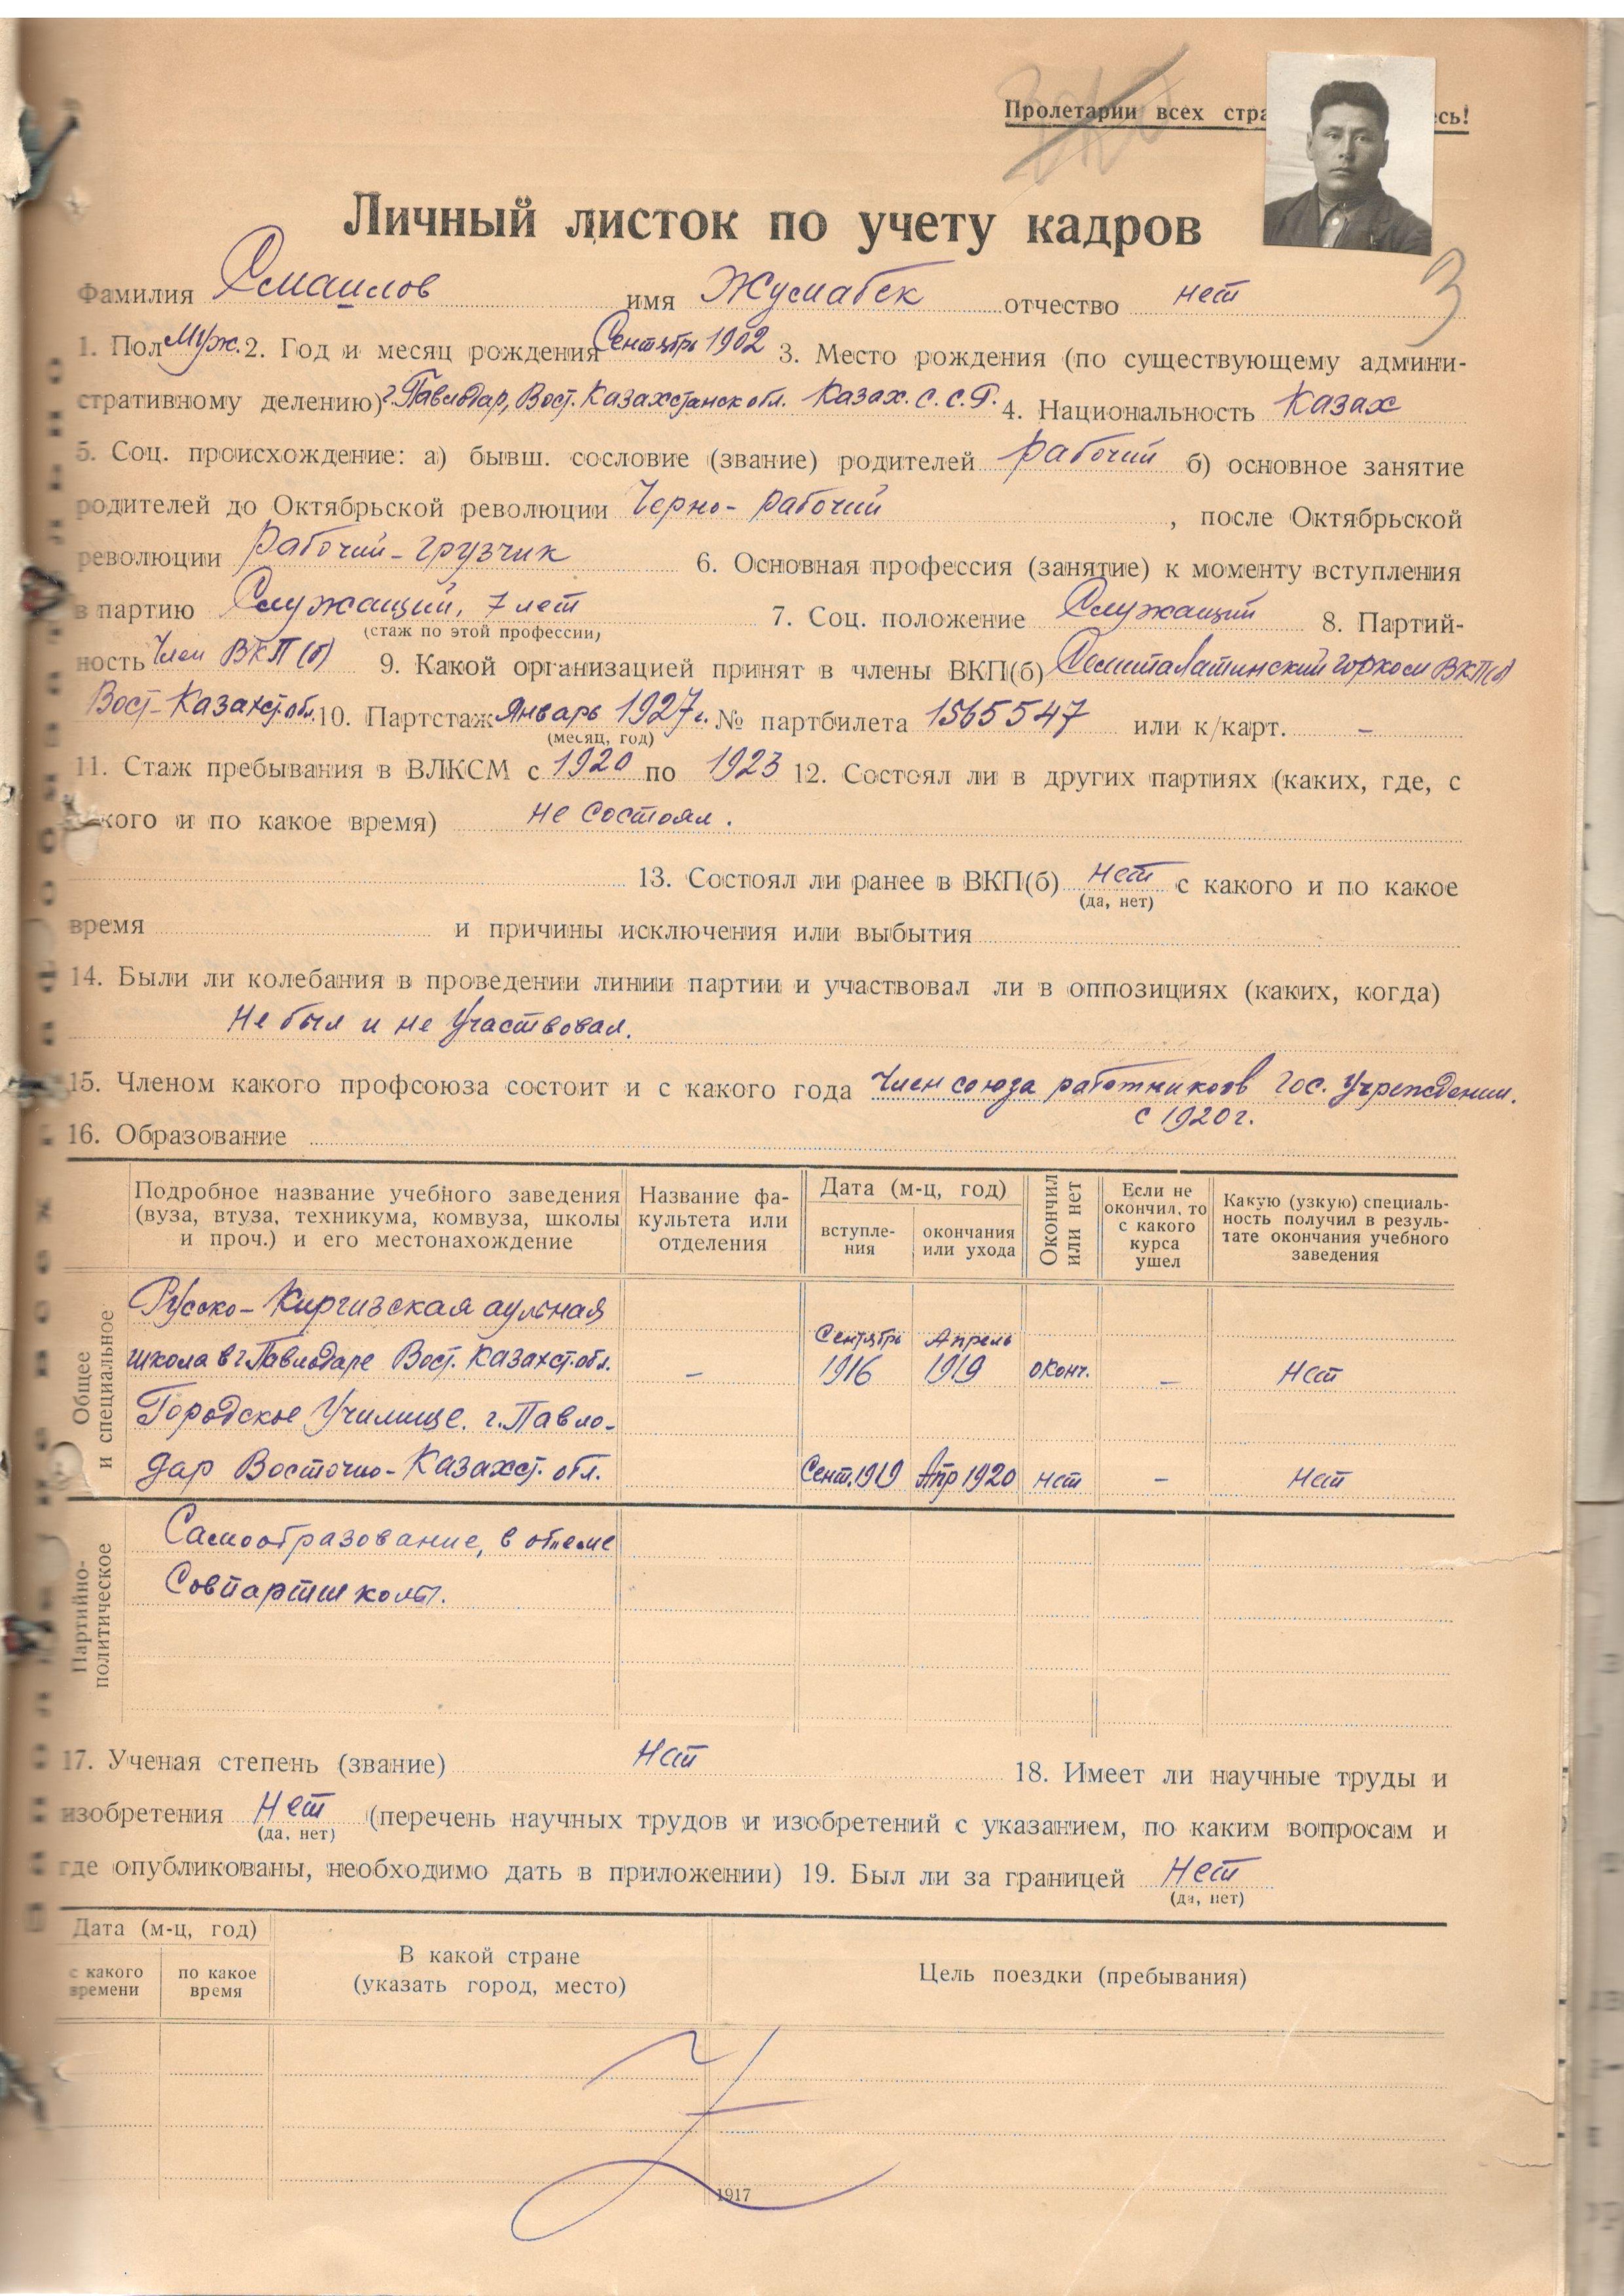 Пролетарии всех стра есь!
Личный листок по учету кадров
3
Фамилия Смаилов имя Жусмабек отчество нет
1. Пол Муж. 2. Год и месяц рождения Сентябрь 1902 3. Место рождения (по существующему админи-
стративному делению) г. Павлодар, Вост. Казахстанск обл. Казах. С. С. Р. 4. Национальность Казах
5. Соц. происхождение: а) бывш. сословие (звание) родителей рабочий б) основное занятие
родителей до Октябрьской революции Черно-рабочий , после Октябрьской
революции Рабочий-грузчик 6. Основная профессия (занятие) к моменту вступления
в партию Служащий, 7 лет 7. Соц. положение Служащий 8. Партий-
(стаж по этой профессии)
ность Член ВКП(б) 9. Какой организацией принят в члены ВКП(б) Семипалатинский горком ВКП(б)
Вост-Казахст. обл. 10. Партстаж Январь 1927 г. № партбилета 1565547 или к/карт. –
(месяц, год)
11. Стаж пребывания в ВЛКСМ с 1920 по 1923 12. Состоял ли в других партиях (каких, где, с
кого и по какое время) не состоял.
13. Состоял ли ранее в ВКП(б) нет с какого и по какое
(да, нет)
время и причины исключения или выбытия
14. Были ли колебания в проведении линии партии и участвовал ли в оппозициях (каких, когда)
Не был и не участвовал.
15. Членом какого профсоюза состоит и с какого года Член союза работников гос. Учреждении.
с 1920 г.
16. Образование
Подробное название учебного заведения (вуза, втуза, техникума, комвуза, школы и проч.) и его местонахождение
Название факультета или отделения
Дата (м-ц, год)
вступле-
ния
окончания
или ухода
Окончил
или нет
Если не
окончил, то
с какого
курса
ушел
Какую (узкую) специаль-
ность получил в резуль-
тате окончания учебного
заведения
Общее
и специальное
Русско-Киргизская аульная
школа в г. Павлодаре Вост. Казахст. обл. – Сентябрь 1916 Апрель 1919 оконч. – Нет
Городское Училище. г. Павло-
дар Восточно-Казахст. обл. Сент. 1919 Апр 1920 нет – Нет
Партийно-
политическое
Самообразование, в объеме
Совпартшколы.
17. Ученая степень (звание) Нет 18. Имеет ли научные труды и
изобретения Нет (перечень научных трудов и изобретений с указанием, по каким вопросам и
(да, нет)
где опубликованы, необходимо дать в приложении) 19. Был ли за границей Нет
(да, нет)
Дата (м-ц, год)
с какого
времени
по какое
время
В какой стране
(указать город, место)
Цель поездки (пребывания)
1917